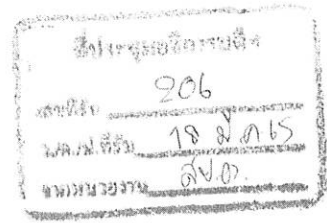 ที่ประชุมอธิการบดีฯ
เลขที่รับ 206
ว/ด/ป.ที่รับ 18 มี.ค 65
จากหน่วยงาน สป.อ.